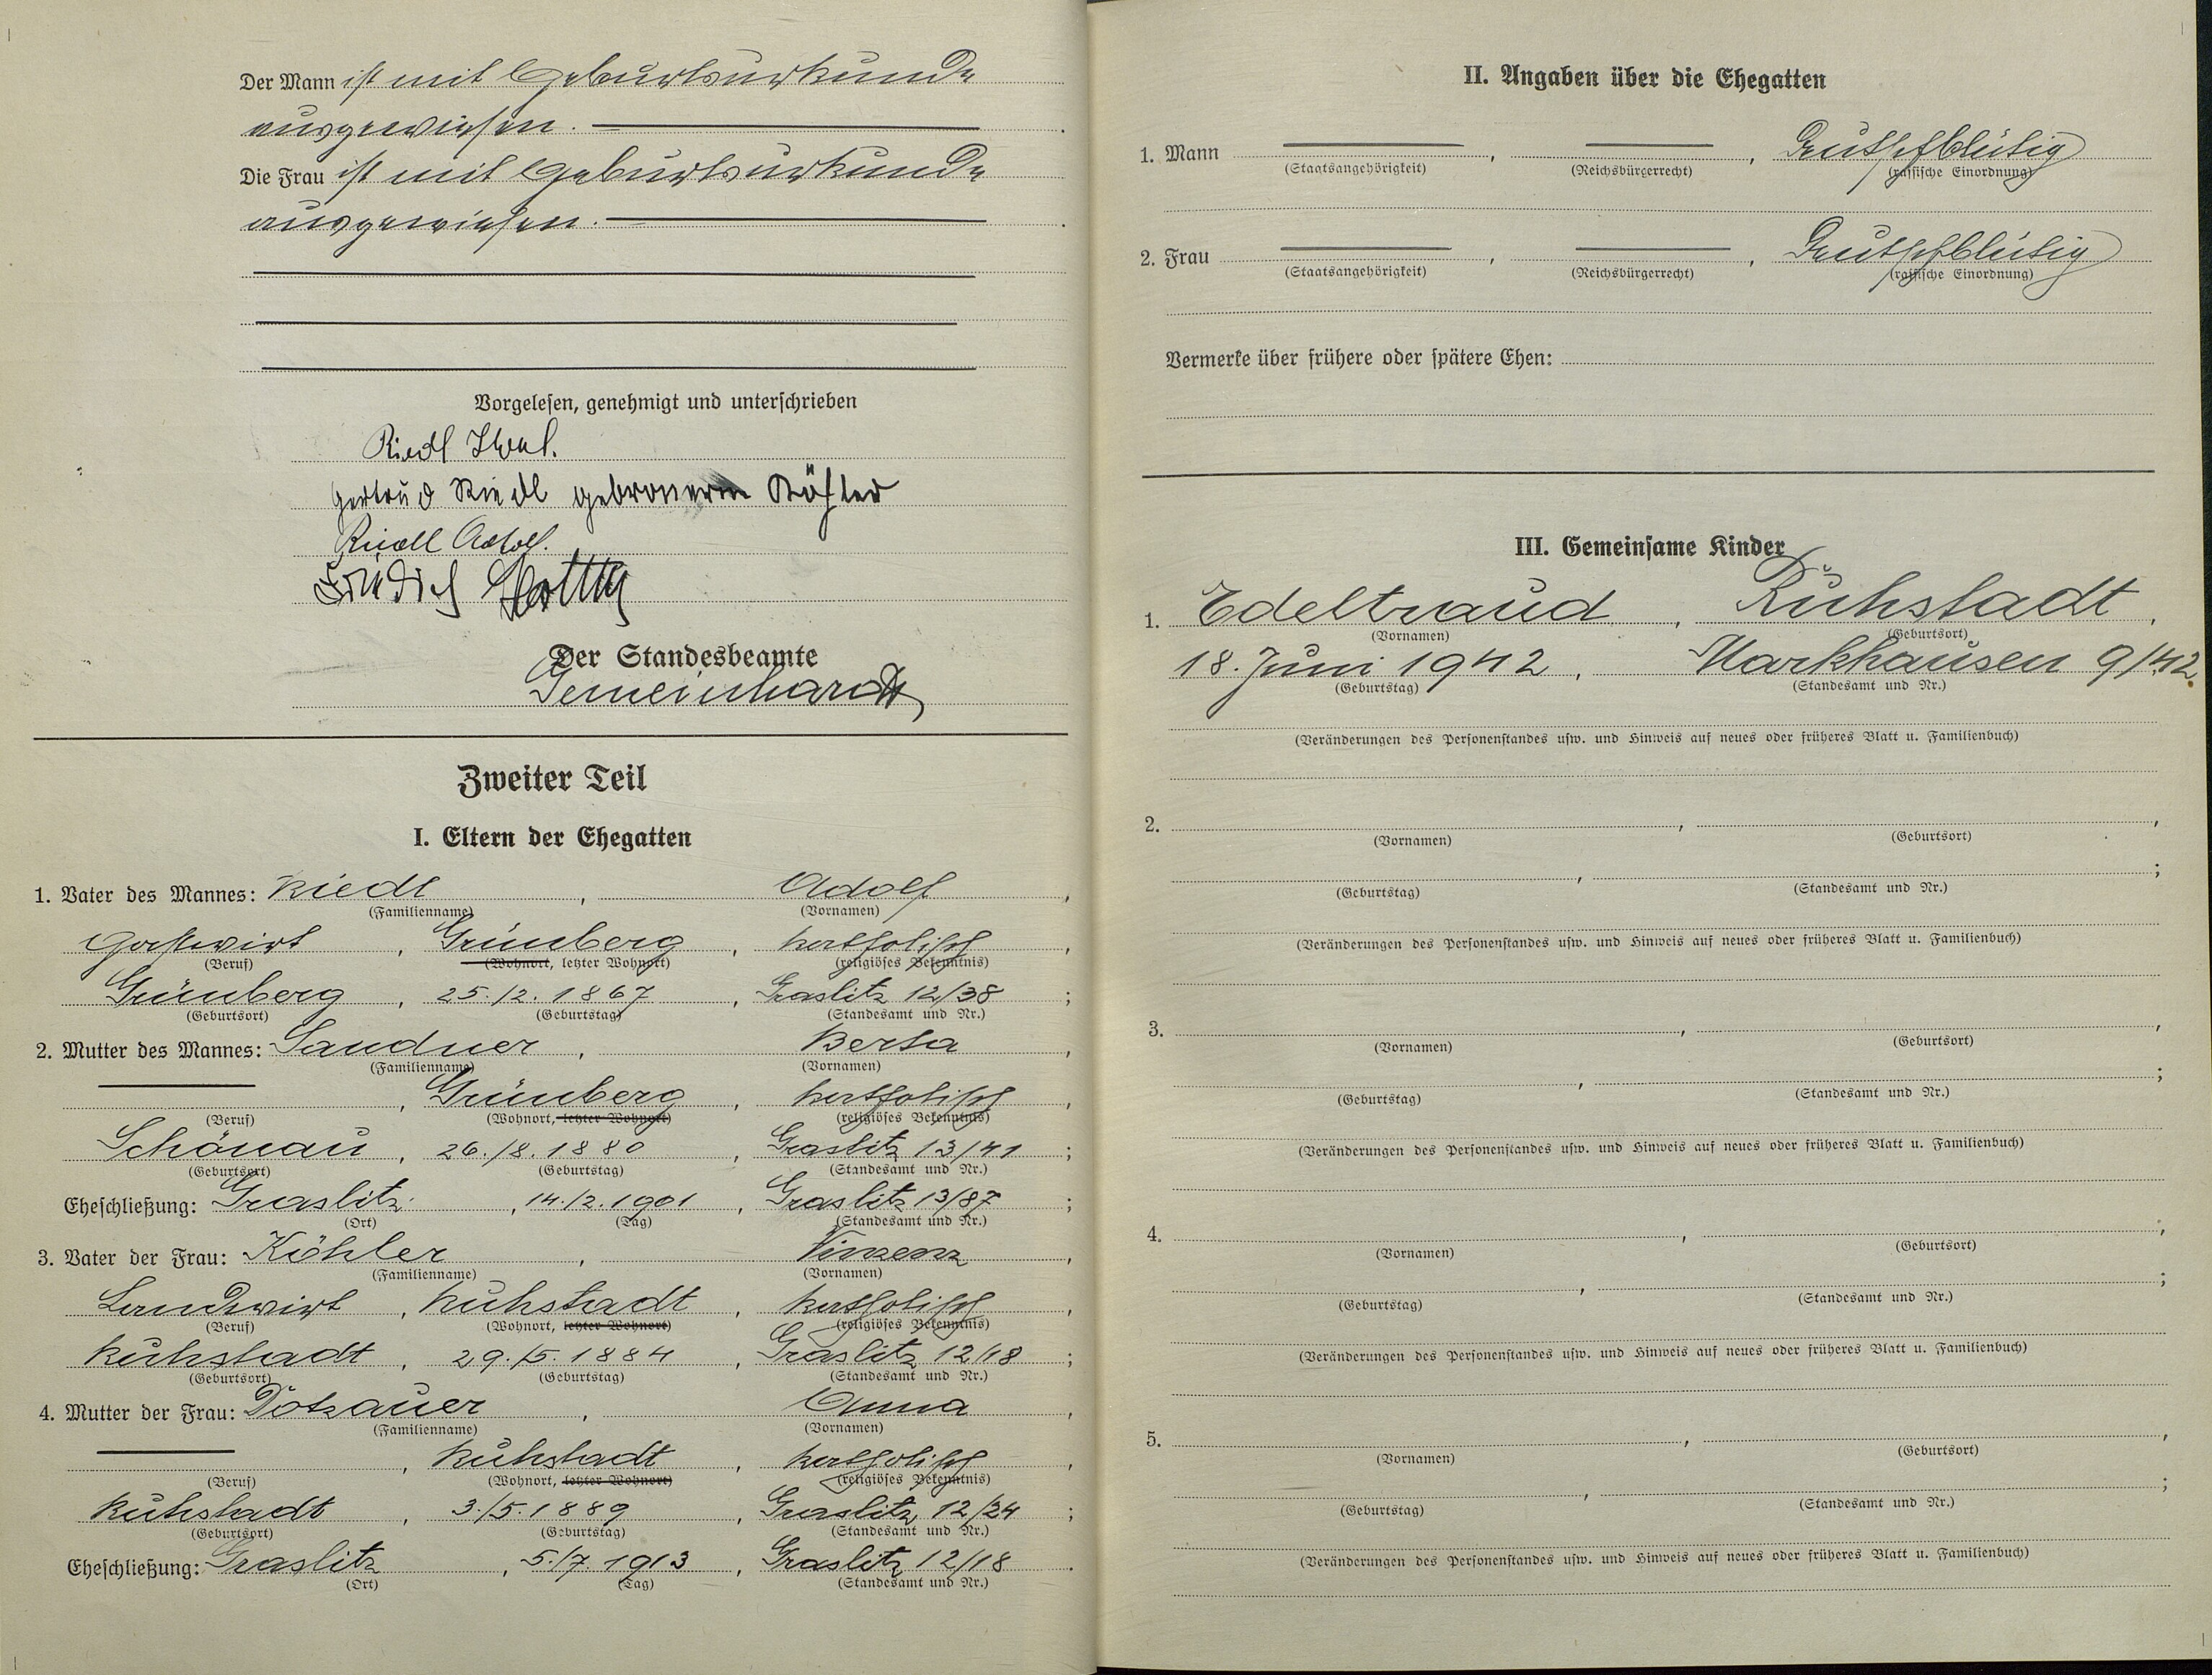 Der Mann ist mit Geburtsurkunde
ausgewiesen.
Die Frau ist mit Geburtsurkunde
ausgewiesen.
Vorgelesen, genehmigt und unterschrieben
Riedl
Gertrud Riedl Köhler
Riedl Adolf.
Der Standesbeamte
Gemeinhardt
Zweiter Teil
I. Eltern der Ehegatten
1. Vater des Mannes: Riedl, Adolf,
(Familienname) (Vornamen)
Gastwirt, Grünberg, katholisch,
(Beruf) (Wohnort, letzter Wohnort) (religiöses Bekenntnis)
Grünberg, 25./2. 1867, Graslitz 12/38;
(Geburtsort) (Geburtstag) (Standesamt und Nr.)
2. Mutter des Mannes: Sandner, Berta,
(Familienname) (Vornamen)
, Grünberg, katholisch,
(Beruf) (Wohnort, letzter Wohnort) (religiöses Bekenntnis)
Schönau, 26./8. 1880, Graslitz 13/41;
(Geburtsort) (Geburtstag) (Standesamt und Nr.)
Eheschließung: Graslitz, 14./2. 1901, Graslitz 13/87;
(Ort) (Tag) (Standesamt und Nr.)
3. Vater der Frau: Köhler, Vinzenz,
(Familienname) (Vornamen)
Landwirt, Ruhstadt, katholisch,
(Beruf) (Wohnort, letzter Wohnort) (religiöses Bekenntnis)
Ruhstadt, 29./5. 1884, Graslitz 12/18;
(Geburtsort) (Geburtstag) (Standesamt und Nr.)
4. Mutter der Frau: Dotzauer, Anna,
(Familienname) (Vornamen)
, Ruhstadt, katholisch,
(Beruf) (Wohnort, letzter Wohnort) (religiöses Bekenntnis)
Ruhstadt, 3./5. 1889, Graslitz 12/24;
(Geburtsort) (Geburtstag) (Standesamt und Nr.)
Eheschließung: Graslitz, 5./7. 1913, Graslitz 12/18.
(Ort) (Tag) (Standesamt und Nr.)
II. Angaben über die Ehegatten
1. Mann , , Deutschblütig
(Staatsangehörigkeit) (Reichsbürgerrecht) (rassische Einordnung)
2. Frau , , Deutschblütig
(Staatsangehörigkeit) (Reichsbürgerrecht) (rassische Einordnung)
Vermerke über frühere oder spätere Ehen:
III. Gemeinsame Kinder
1. Edeltraud, Ruhstadt,
(Vornamen) (Geburtsort)
18. Juni 1942, Markhausen 9/42.
(Geburtstag) (Standesamt und Nr.)
(Veränderungen des Personenstandes usw. und Hinweis auf neues oder früheres Blatt u. Familienbuch)
2. , ,
(Vornamen) (Geburtsort)
, ;
(Geburtstag) (Standesamt und Nr.)
(Veränderungen des Personenstandes usw. und Hinweis auf neues oder früheres Blatt u. Familienbuch)
3. , ,
(Vornamen) (Geburtsort)
, ;
(Geburtstag) (Standesamt und Nr.)
(Veränderungen des Personenstandes usw. und Hinweis auf neues oder früheres Blatt u. Familienbuch)
4. , ,
(Vornamen) (Geburtsort)
, ;
(Geburtstag) (Standesamt und Nr.)
(Veränderungen des Personenstandes usw. und Hinweis auf neues oder früheres Blatt u. Familienbuch)
5. , ,
(Vornamen) (Geburtsort)
, ;
(Geburtstag) (Standesamt und Nr.)
(Veränderungen des Personenstandes usw. und Hinweis auf neues oder früheres Blatt u. Familienbuch)